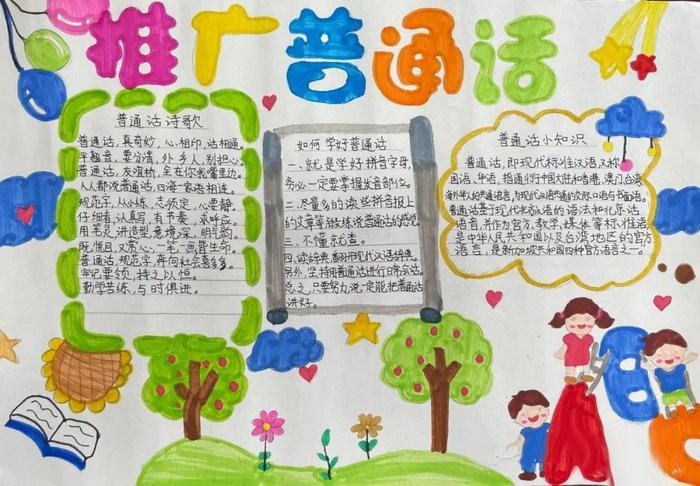 推广普通话
普通话诗歌
普通话,真奇妙,心相印,话相通。
平翘音,要分清,外乡人,别担心。
普通话,友谊桥,全在你我嘴里边。
人人都说普通话,四海一家语相连。
规范字,从小练,志须定,心要静。
仔细看,认真写,有节奏,
用笔灵,讲造型,意境深,明气韵。
既悦目,又赏心,一笔一画皆生命。
普通话,规范字,再向社会喜多多。
牢记要领,持之以恒。
勤学苦练,与时俱进。
如何学好普通话
一、就是学好拼音字母,
务必一定要掌握发音部位。
二、尽量多的读些拼音报上
的文章等够练说普通话的感觉。
三、不懂就查。
四、读辞典、翻现代汉语辞典。
另外,坚持用普通话进行日常会话。
总之,只要努力一定能把普通话
讲好。
普通话小知识
普通话,即现代标准汉语,又称
国语、华语,指通行于中国大陆和香港、澳门、台湾、
海外华人的共通语言,与现代汉语共通的交际口语与书面语。
普通话基于现代北方汉语的语法和北京话
语音,并作为官方、教学、媒体等标准语
是中华人民共和国以及台湾地区的官方
语言,是新加坡共和国四种官方语言之一。